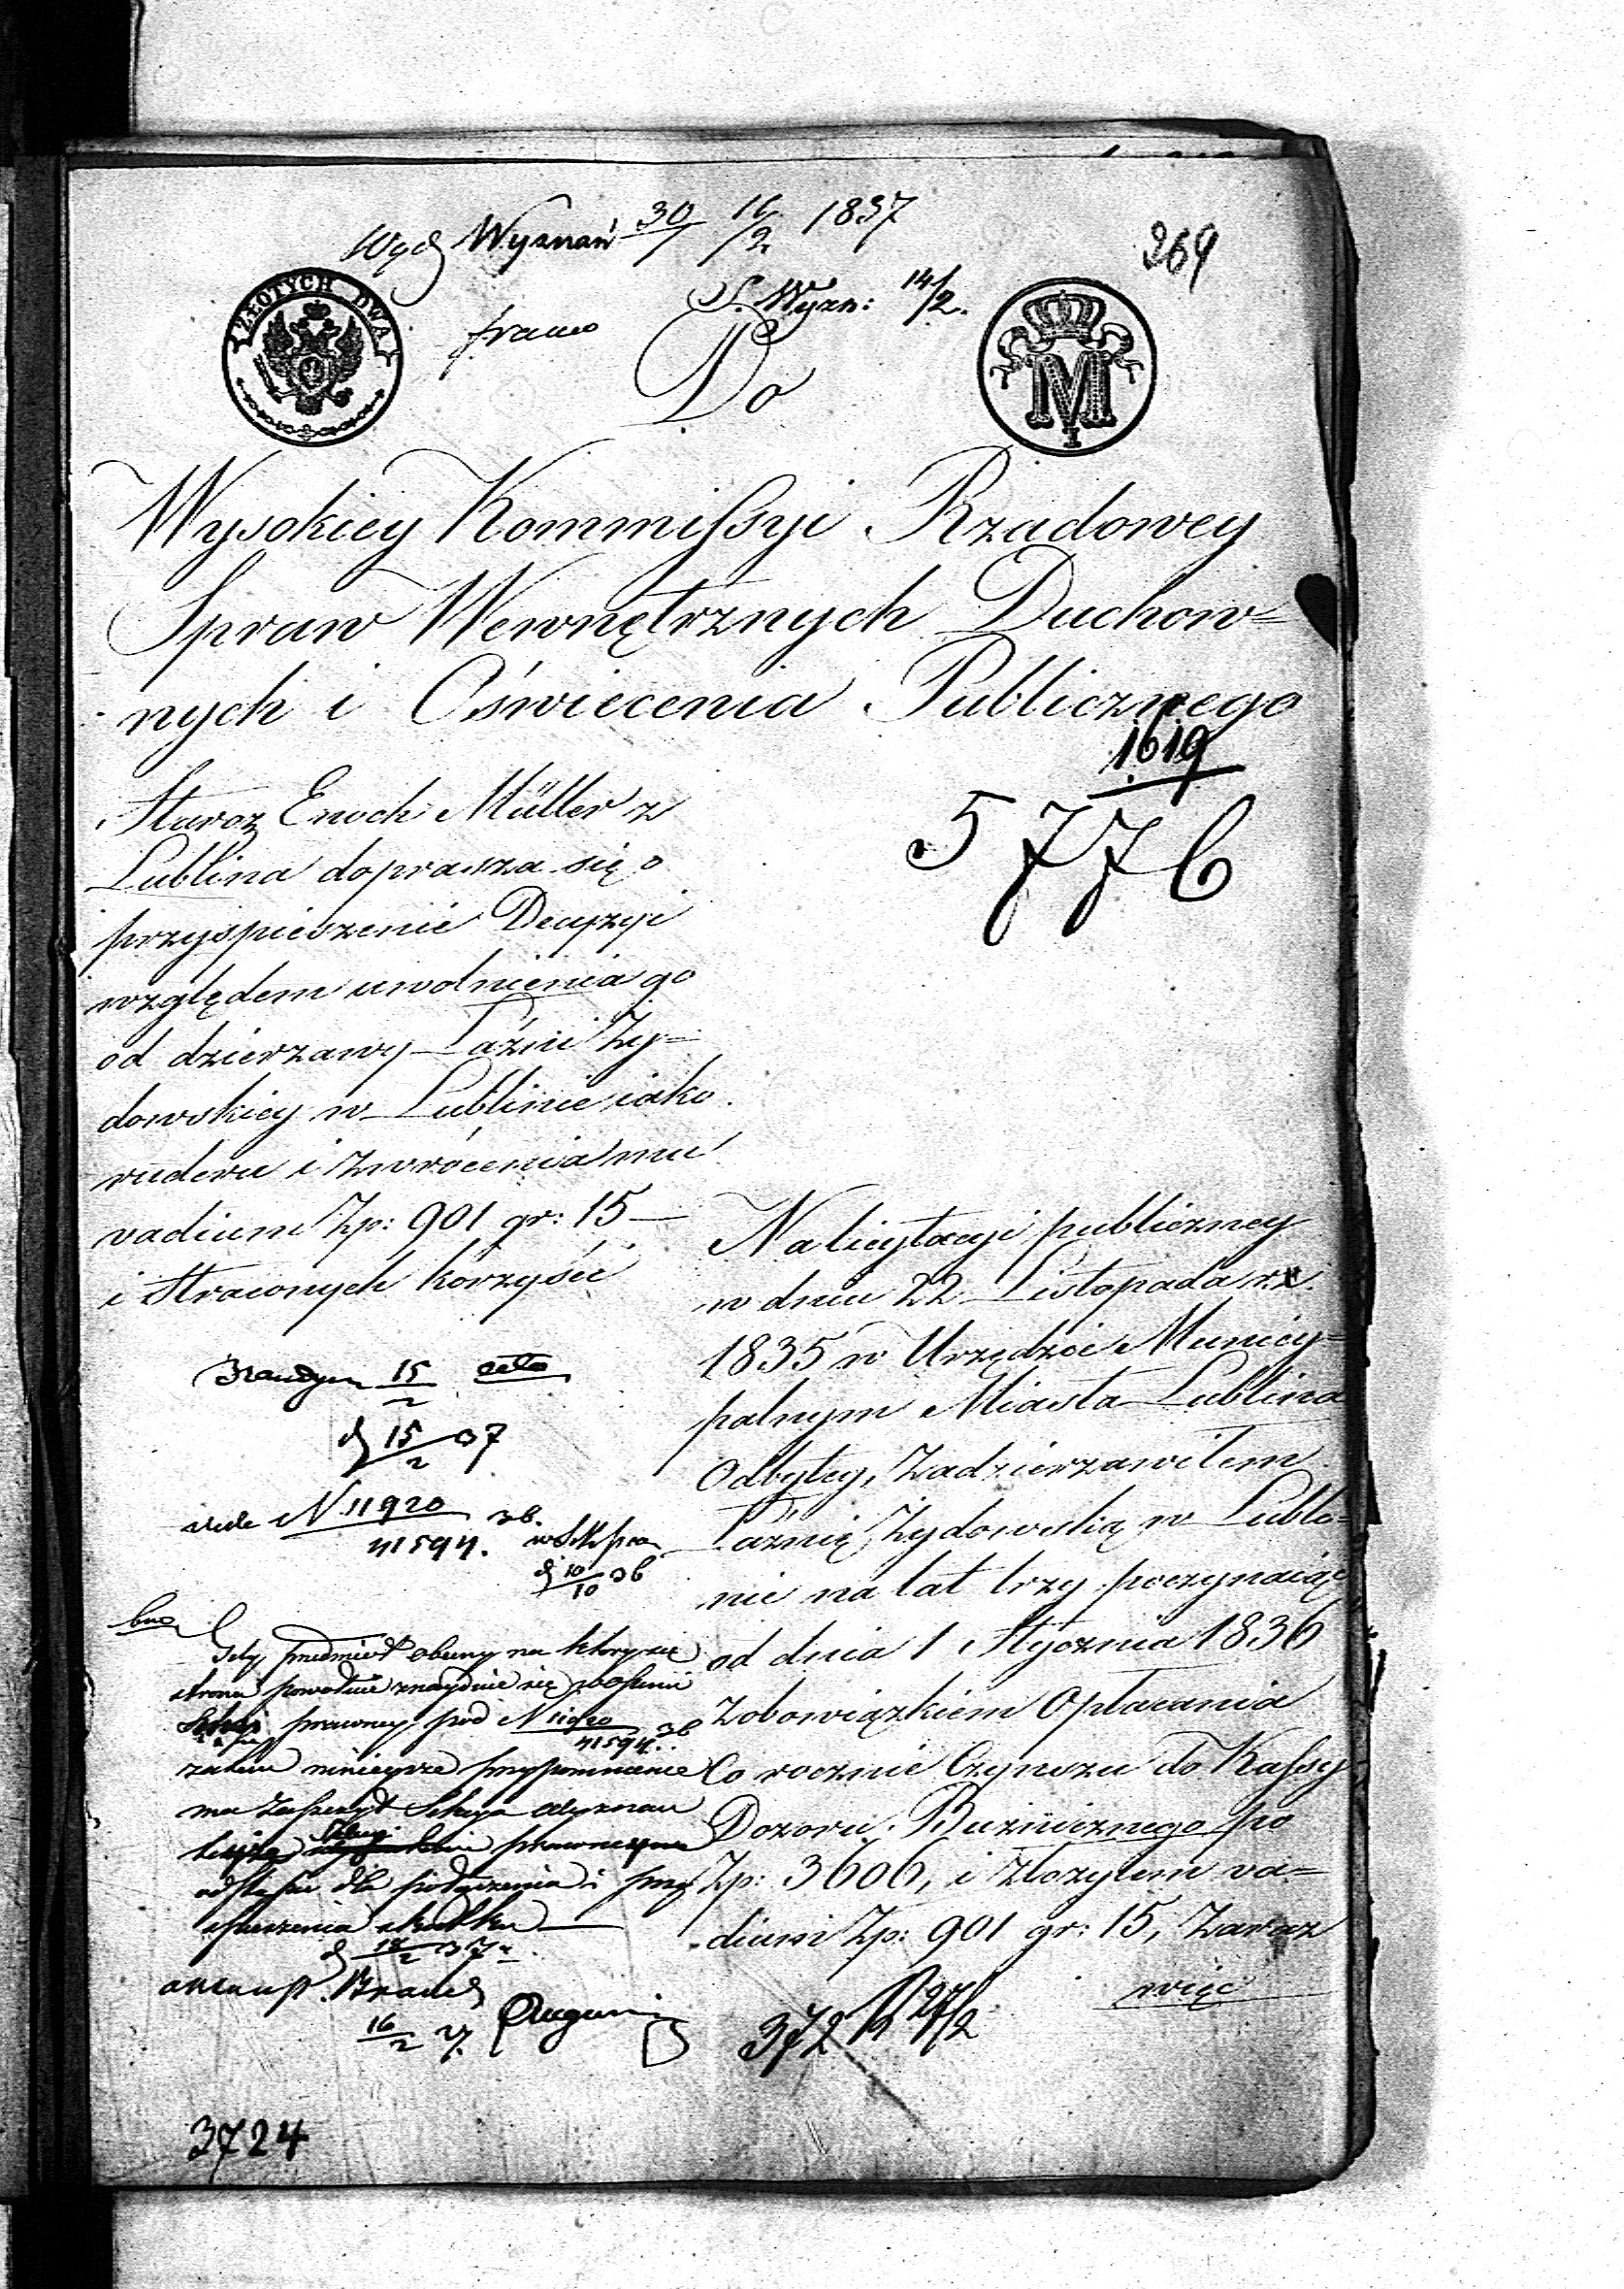 Wydz Wyznań 30/1 16/2 1837
269
S. Wyzn: 14/2.
ZŁOTYCH DWA
franco
Do
M
I
Wysokiey Kommissyi Rządowey
Spraw Wewnętrznych Duchow=
nych i Oświecenia Publicznego
1619
5776
Staroz Enoch Müller z
Lublina doprasza się o
przyspieszenie Decyzyi
względem uwolnienia go
od dzierzawy Łaźni Ży=
dowskiey w Lublinie iako
rudera i zwrócenia mu
vadium Zp: 901 gr: 15 —
i straconych korzyści
15/2
d 15/2 37
vide N 11920/41594. 36.
d 10/10 36
Gdy przedmiot obecny na który się
strona powołuie znayduie się w
prawney pod N 11920/41594. 36
zatem ninieysze przypomnienie
ma zaszczyt Sekcya Wyznań
odstąpić dla połączenia i przy
spieszenia skutku —
d 37
16/2
3724
Na licytacyi publiczney
w dniu 22 Listopada r.
1835 w Urzędzie Municy=
palnym Miasta Lublina
odbytey, zadzierzawiłem
Łaźnią Żydowską w Lubli=
nie na lat trzy poczynaiąc
od dnia 1 Stycznia 1836
z obowiązkiem opłacania
co rocznie Czynszu do Kassy
Dozoru Bużniczego po
Zp: 3606, i złożyłem va=
dium Zp: 901 gr: 15, zaraz
więc
372 27/2